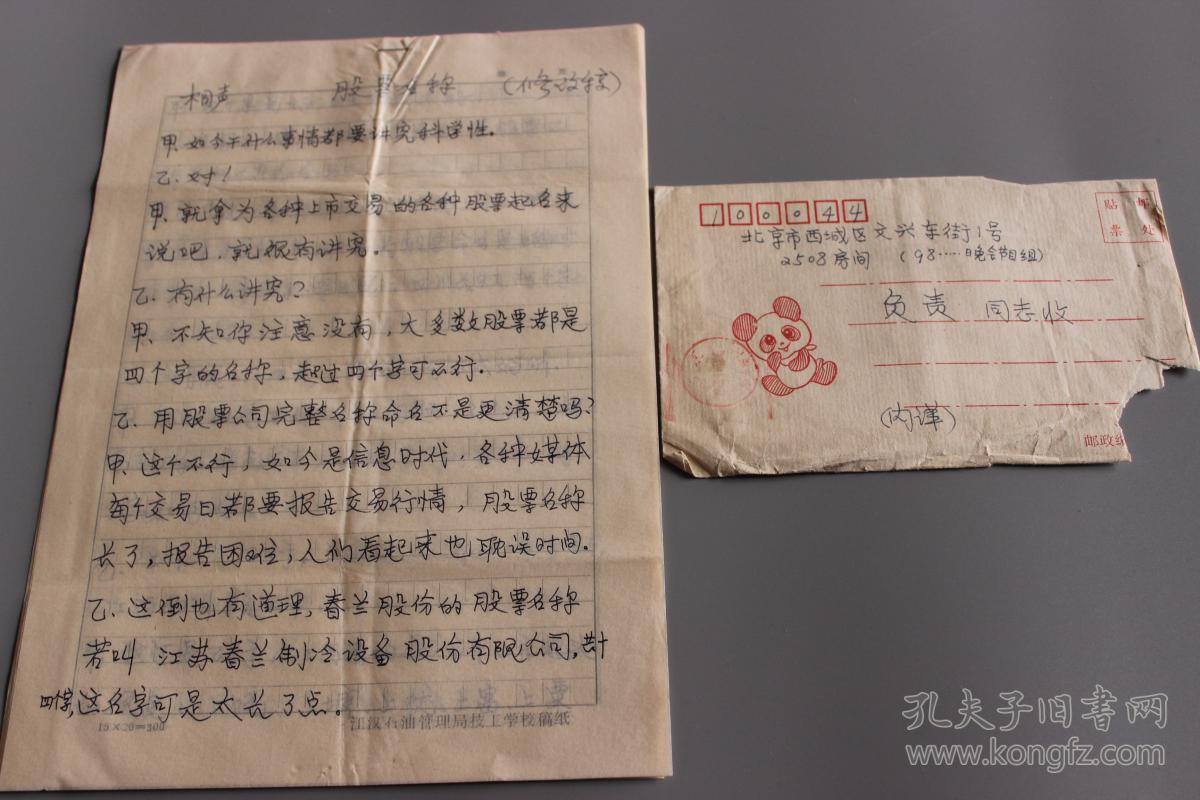 相声 股票名称 (修改稿)
甲、如今干什么事情都要讲究科学性。
乙、对!
甲、就拿为各种上市交易的各种股票起名来
说吧,就很有讲究。
乙、有什么讲究?
甲、不知你注意没有,大多数股票都是
四个字的名称,超过四个字可不行。
乙、用股票公司完整名称命名不是更清楚吗?
甲、这个不行,如今是信息时代,各种媒体
每个交易日都要报告交易行情,股票名称
长了,报告困难,人们看起来也耽误时间。
乙、这倒也有道理,春兰股份的股票名称
若叫 江苏春兰制冷设备股份有限公司,共十
四个字,这名字可是太长了点。
15×20=300 江汉石油管理局技工学校稿纸
100044
贴 邮
票 处
北京市西城区文兴东街1号
2508房间 (98……晚会节目组)
负责 同志收
(内详)
邮政编
孔夫子旧书网
www.kongfz.com